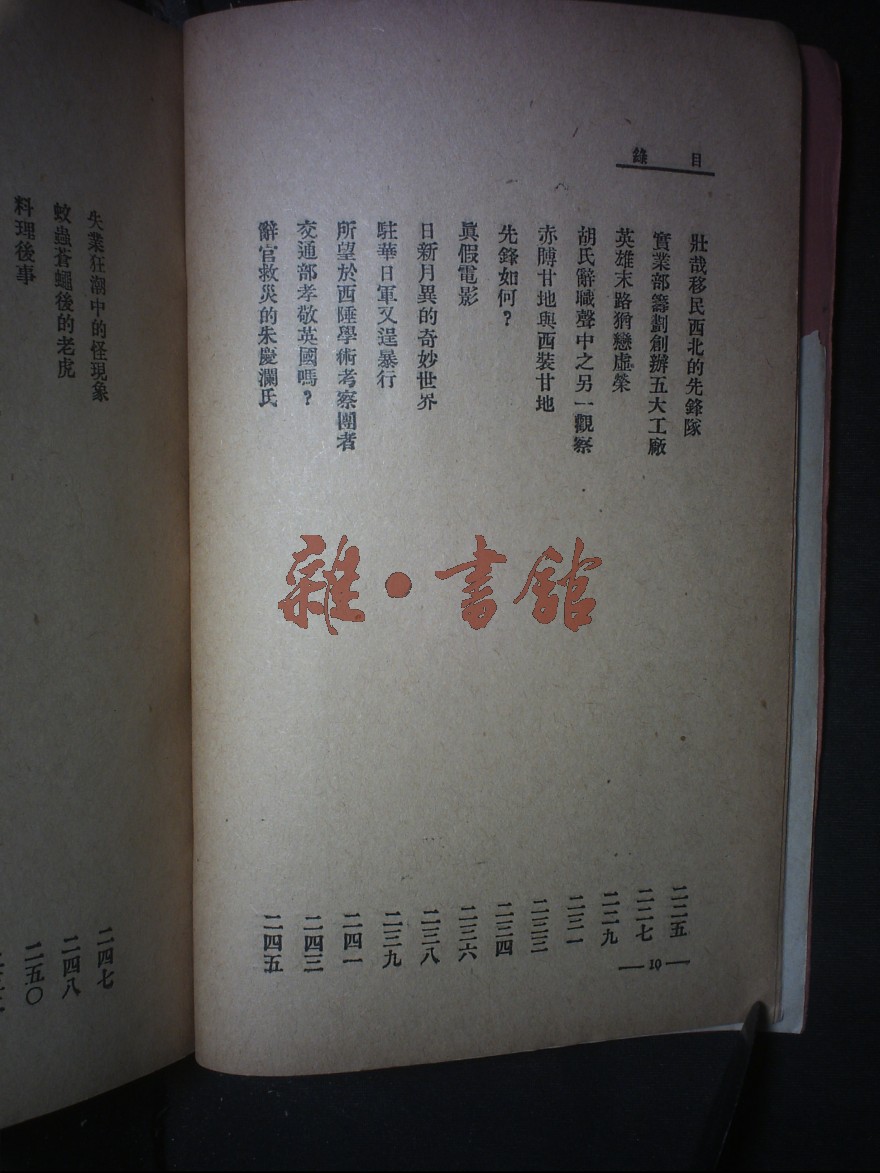 目錄
壯哉移民西北的先鋒隊 二二五
實業部籌劃創辦五大工廠 二二七
英雄末路猶戀虛榮 二二九
胡氏辭職聲中之另一觀察 二三一
赤膊甘地與西裝甘地 二三三
先鋒如何？ 二三四
眞假電影 二三六
日新月異的奇妙世界 二三八
駐華日軍又逞暴行 二三九
所望於西陲學術考察團者 二四一
交通部孝敬英國嗎？ 二四三
辭官救災的朱慶瀾氏 二四五
— 10 —
雜·書館
失業狂潮中的怪現象 二四七
蚊蟲蒼蠅後的老虎 二四八
料理後事 二五〇